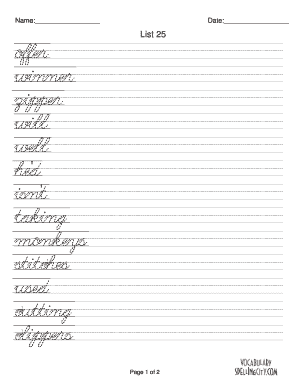 Name: Date:
List 25
offer
winner
zipper
will
well
he'd
isn't
taking
monkeys
stitches
used
cutting
slippers
Page 1 of 2
VOCABULARY
SPELLINGCITY.COM